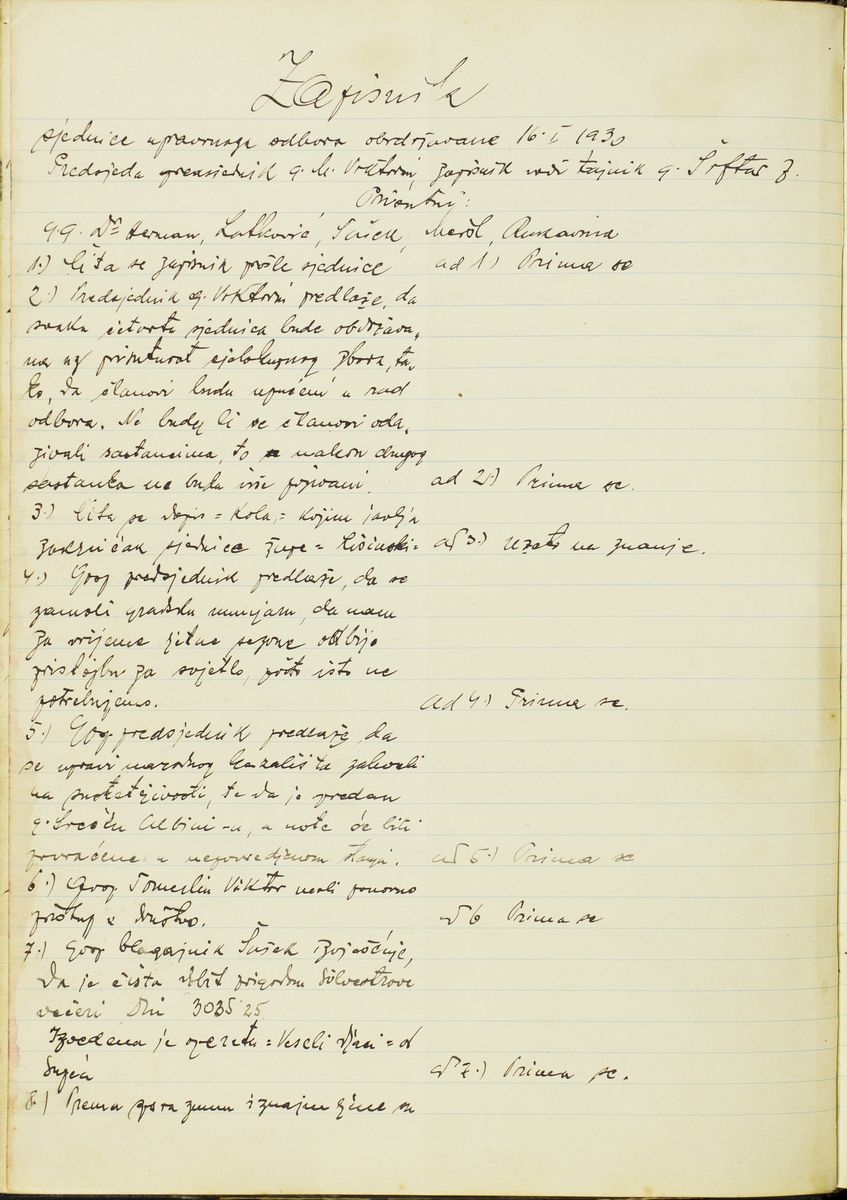 Zapisnik
sjednice upravnoga odbora obrdržavane 16. I 1930
Predsjeda predsjednik g. M. Vrktorni, zapisnik vodi tajnik g. Šoftar Z.
Prisutni:
gg. Dr Herman, Latković, Sušek, Meršl, Rukavina
1.) Čita se zapisnik prošle sjednice
ad 1) Prima se
2.) Predsjednik g. predlaže, da
svaka četvrta sjednica bude obdržava„
na uz prisutnost cjelokupnog zbora, ta„
ko, da članovi budu upućeni u rad
odbora. Ne budu li se članovi oda„
zivali sastancima, to nakon drugog
sastanka ne budu više pozivani.
ad 2.) Prima se.
3.) Čita se dopis = Kola = kojim javlja
zaključak sjednice župe = Lisinski =
ad 3.) uzeto na znanje.
4.) Gosp predsjednik predlaže, da se
zamoli gradsku munjaru, da nam
za vrijeme ljetne sezone odbije
pristojbu za svjetlo, pošto isto ne
potrebujemo.
ad 4.) Prima se.
5.) Gosp predsjednik predlaže da
se upravi narodnog kazališta zahvali
na susretljivosti, te da je predan
g. Srećku Albini-u, a note će biti
povraćene u nepovredjenom stanju.
ad 5.) Prima se
6.) Gosp Tomerlin Viktor moli ponovno
pristup u društvo.
ad 6 Prima se
7.) Gosp blagajnik Sušek izvješćuje,
da je čista dobit prigodom Silvestrove
večeri Din 3035 25
Izvedena je opereta = Veseli djaci = od
Suppéa
ad 7.) Prima se.
8.) Prema